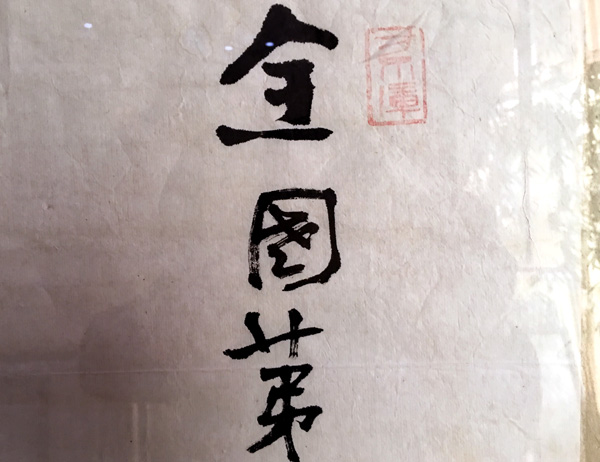 全國第